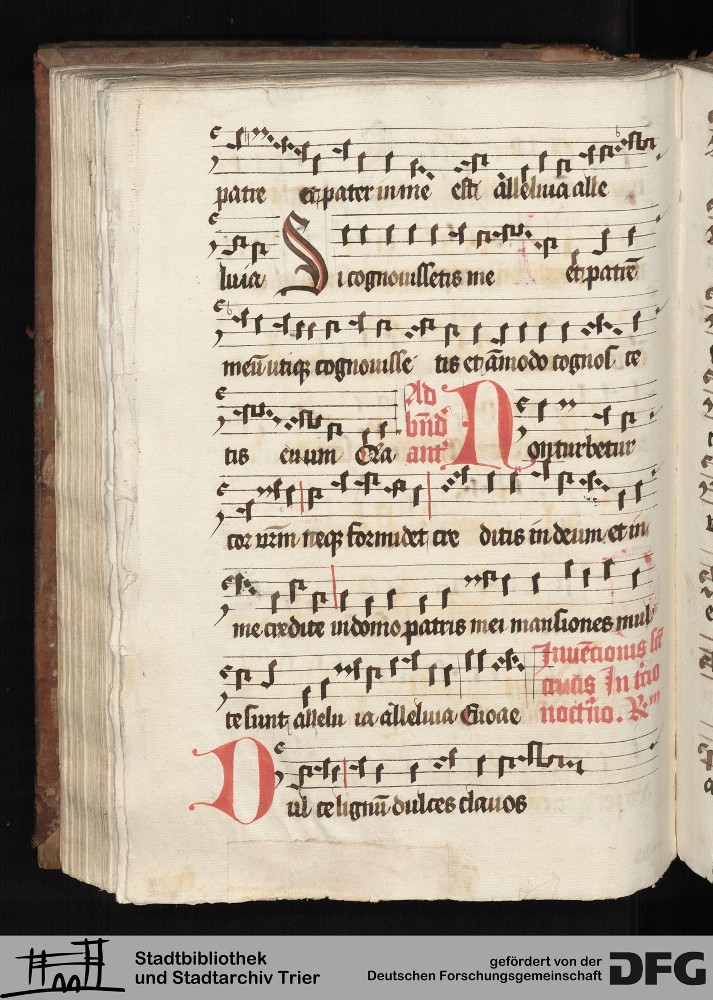 patre et pater in me est alleluia alle
luia Si cognouissetis me et patrē
meū utiqꝫ cognouisse tis et āmodo cognos ce
tis eum Ad
bn̄d
ant Non turbetur
cor urm̄ neqꝫ formidet cre ditis in deum et in
me credite in domo patris mei mansiones mul
te sunt allelu ia alleluia Euoae Inuēcionis scē
crucis In tcio
noctn̄o. Rm
Dul ce lignū dulces clauos
Stadtbibliothek
und Stadtarchiv Trier
gefördert von der
Deutschen Forschungsgemeinschaft DFG